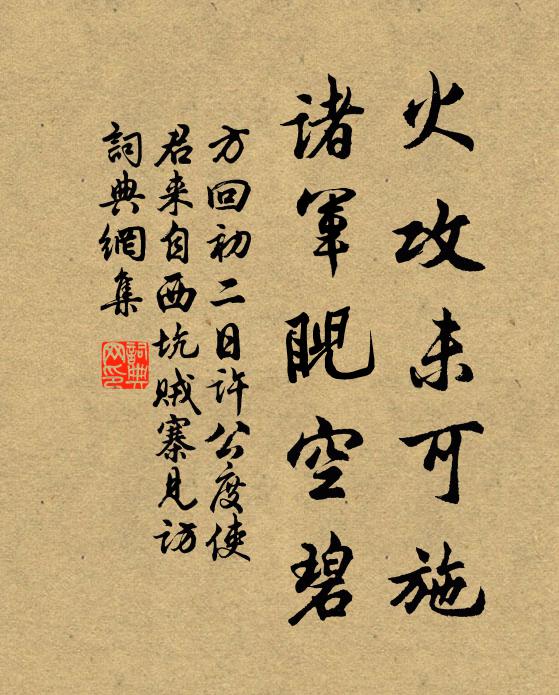 火攻未可施
諸軍睨空碧
方回初二日許公度使
君来自西坑賊寨見訪
詞典網集
詞典
网印